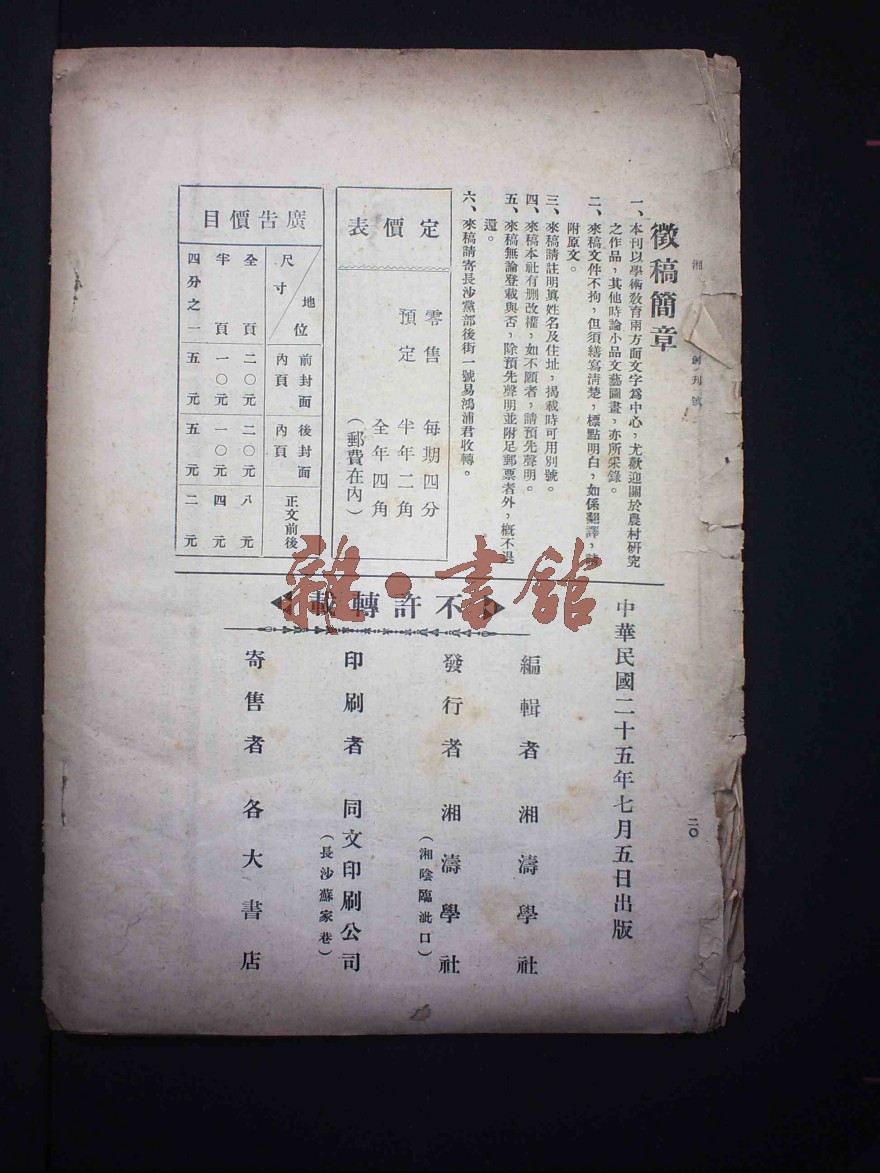 湘
創刊號
二〇
徵稿簡章
一、本刊以學術教育兩方面文字爲中心，尤歡迎關於農村研究
之作品，其他時論小品文藝圖畫，亦所采錄。
二、來稿文件不拘，但須繕寫清楚，標點明白，如係翻譯，請
附原文。
三、來稿請註明眞姓名及住址，揭載時可用別號。
四、來稿本社有刪改權，如不願者，請預先聲明。
五、來稿無論登載與否，除預先聲明並附足郵票者外，概不退
還。
六、來稿請寄長沙黨部後街一號易鴻浦君收轉。
定價表
零售 每期四分
預定 半年二角
全年四角
（郵費在內）
廣告價目
地位 尺寸 全頁 半頁 四分之一
前封面內頁 二〇元 一〇元 五元
後封面內頁 二〇元 一〇元 五元
正文前後 八元 四元 二元
中華民國二十五年七月五日出版
不許轉載
編輯者 湘濤學社
發行者 湘濤學社
（湘陰臨泚口）
印刷者 同文印刷公司
（長沙蘇家巷）
寄售者 各大書店
雜·書館